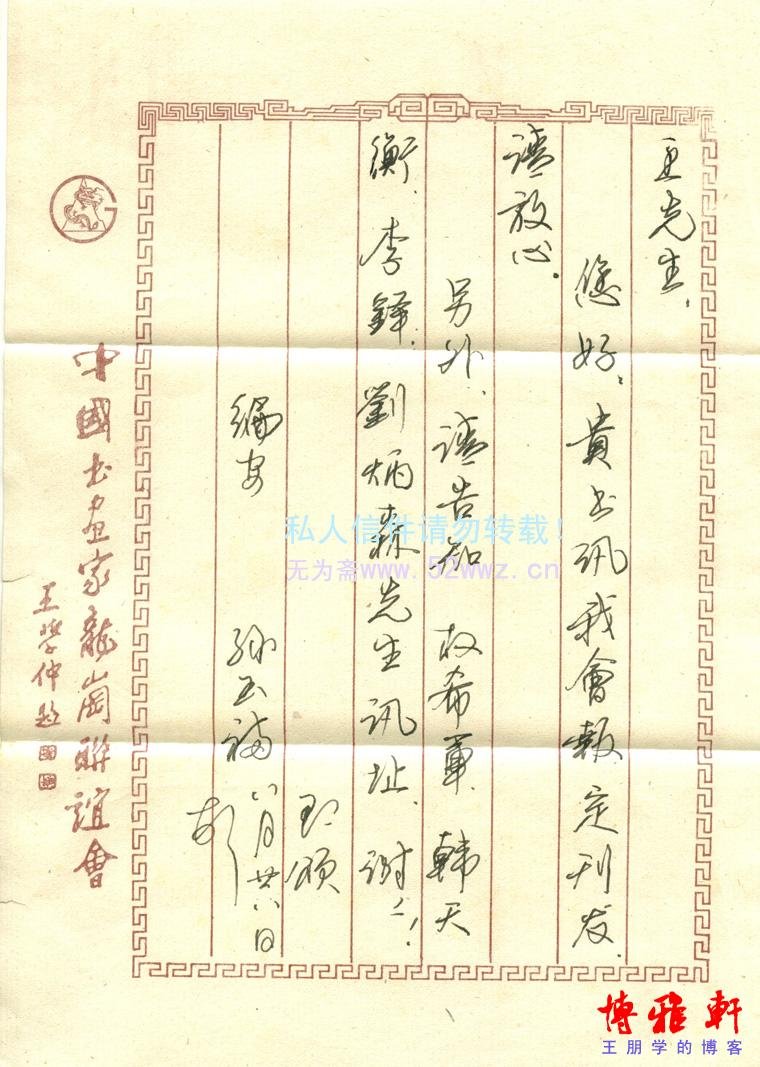 王先生，
您好，貴书讯我會報定刊发，
請放心。
另外，請告知 权希軍、韓天
衡、李鐸、劉炳森先生讯址，谢々！
即頌
編安
孙玉福 八月廿八日
中國书画家龍崗聯誼會
王学仲题
私人信件请勿转载！
无为斋www.52wwz.cn
博雅軒
王朋学的博客